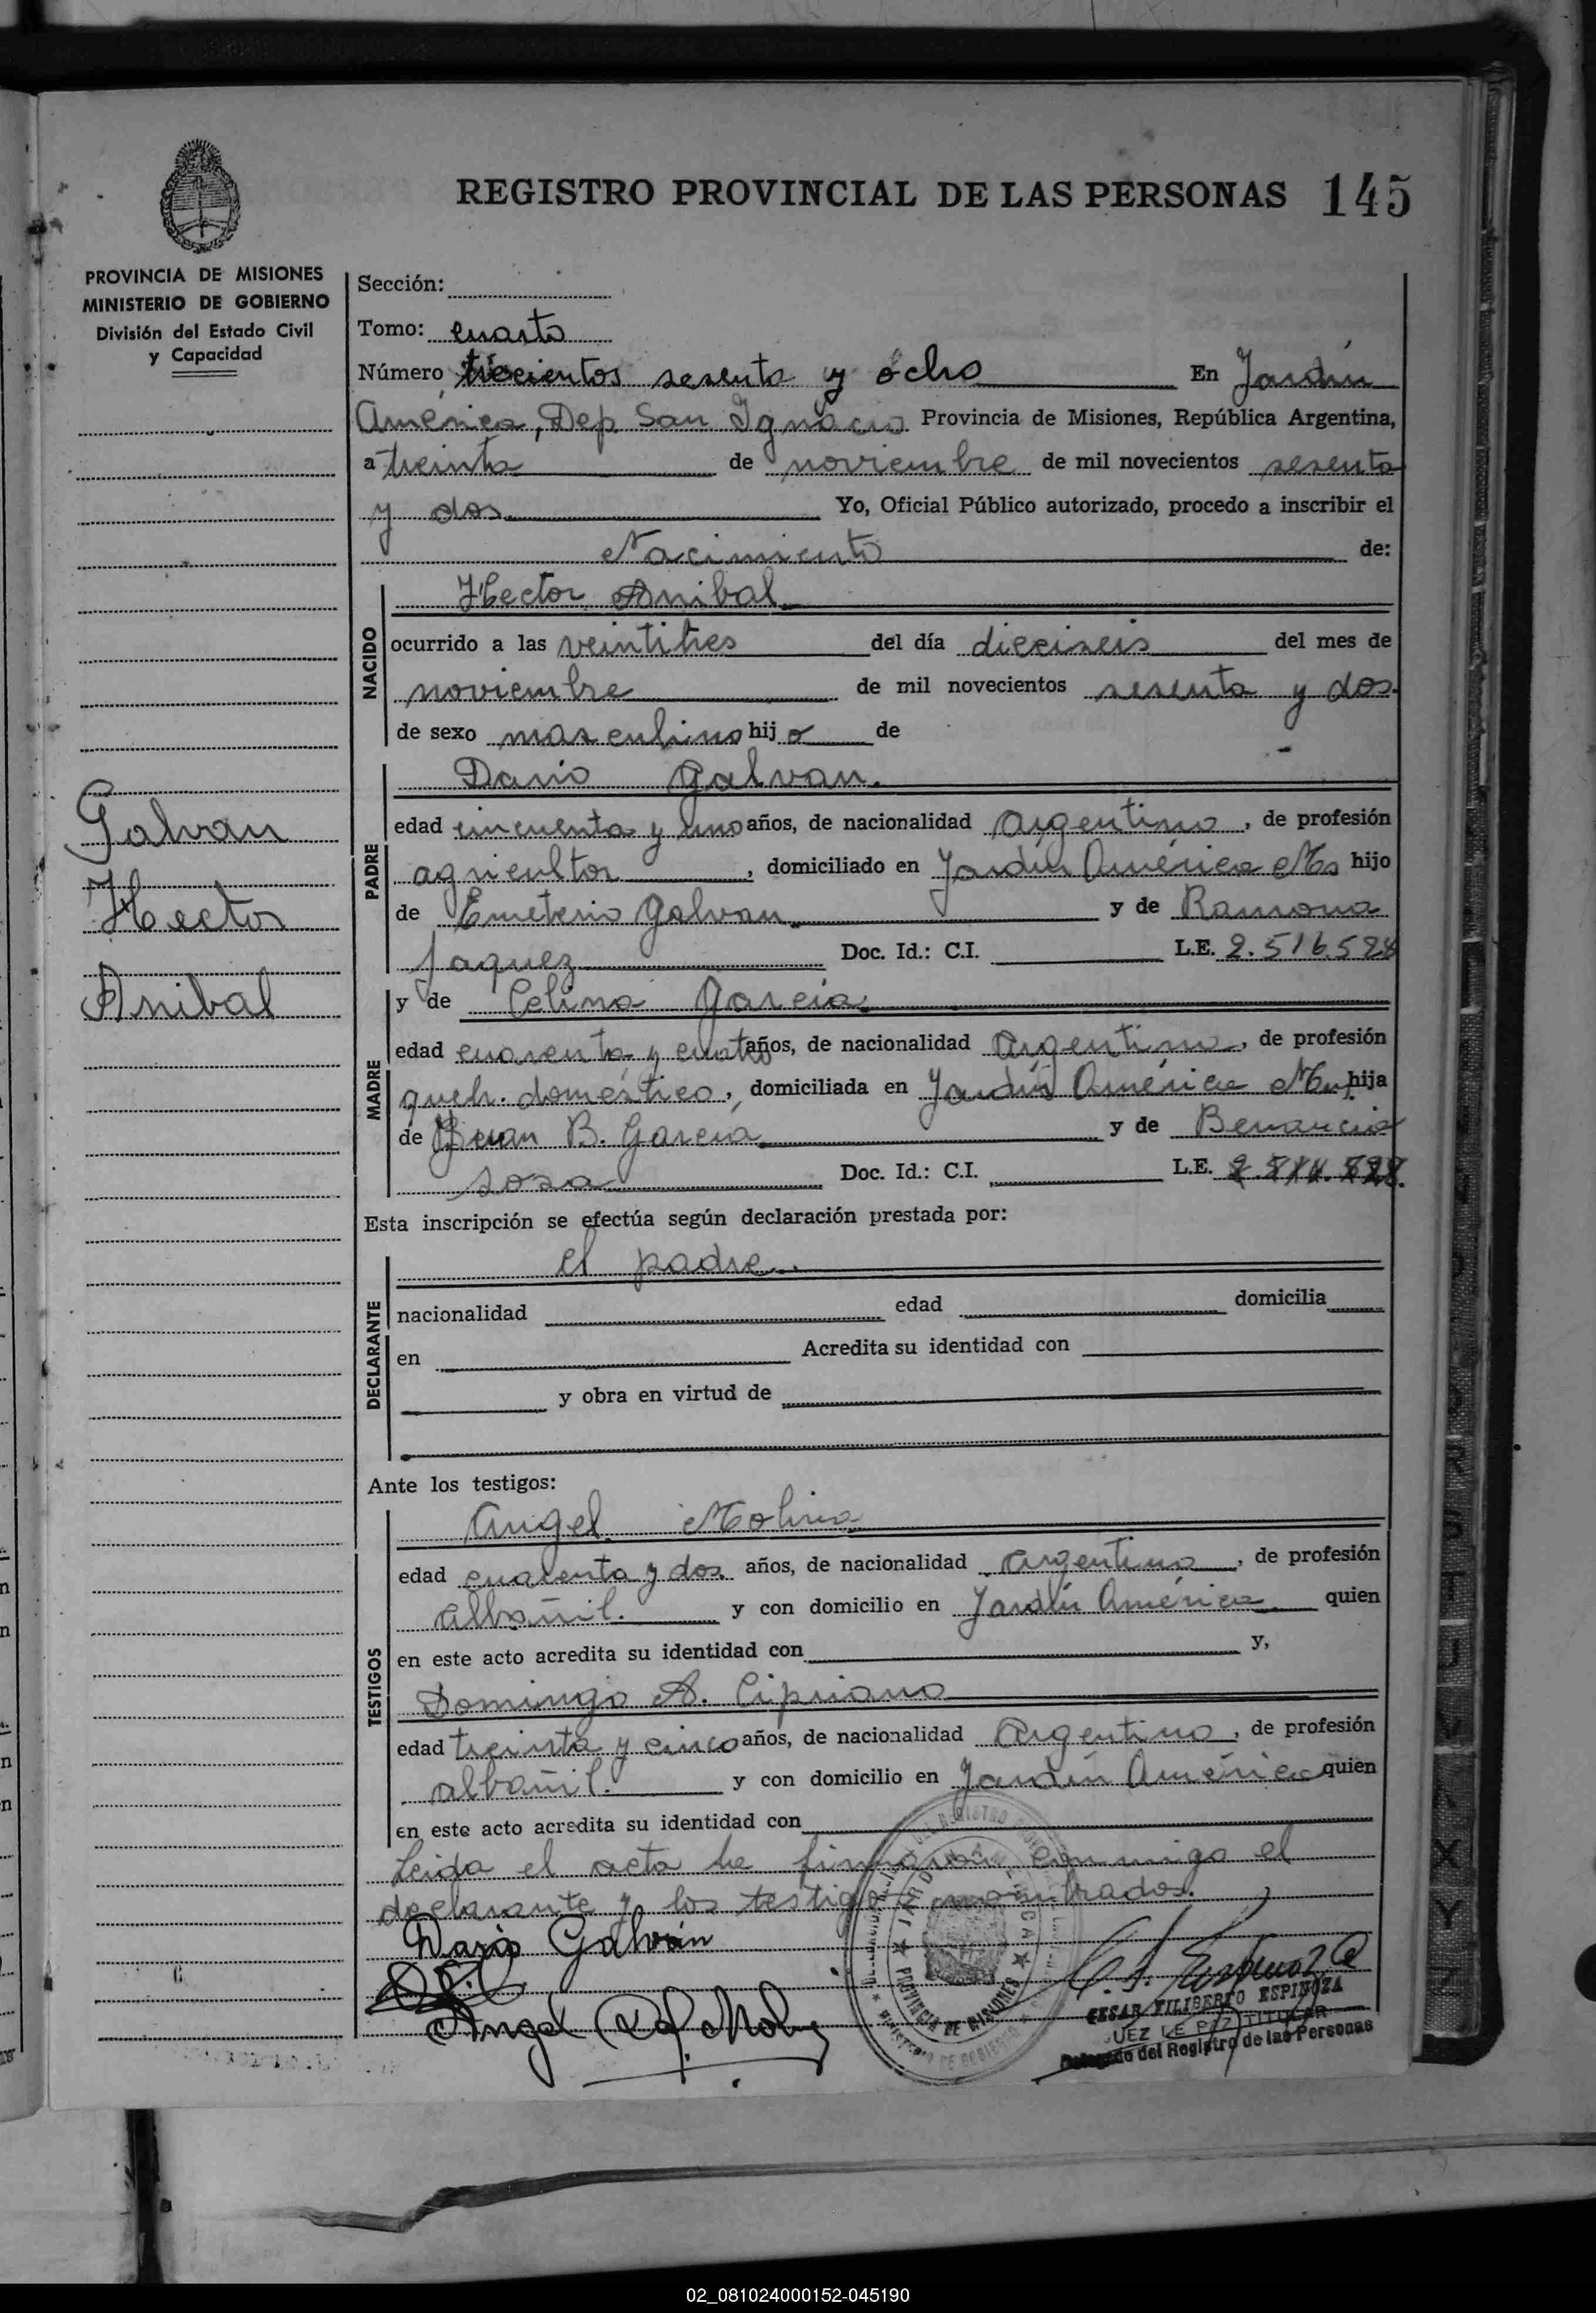 REGISTRO PROVINCIAL DE LAS PERSONAS 145
PROVINCIA DE MISIONES
MINISTERIO DE GOBIERNO
División del Estado Civil
y Capacidad
Galvan
Hector
Anibal
Sección:
Tomo: cuarto
Número trecientos sesenta y ocho En Jardín
América, Dep. San Ignacio Provincia de Misiones, República Argentina,
a treinta de noviembre de mil novecientos sesenta
y dos Yo, Oficial Público autorizado, procedo a inscribir el
Nacimiento de:
NACIDO
Hector Anibal
ocurrido a las veintitres del día dieciseis del mes de
noviembre de mil novecientos sesenta y dos.
de sexo masculino hijo de
PADRE
Dario Galvan.
edad cincuenta y uno años, de nacionalidad Argentino, de profesión
agricultor, domiciliado en Jardín América Ms hijo
de Emeterio Galvan y de Ramona
Jaquez Doc. Id.: C.I. L.E. 2.516.528
MADRE
y de Celina Garcia
edad cuarenta y cuatro años, de nacionalidad Argentina, de profesión
queh. domestico, domiciliada en Jardín América hija
de Juan B. Garcia y de Benancia
sosa Doc. Id.: C.I. L.E.
Esta inscripción se efectúa según declaración prestada por:
DECLARANTE
el padre.
nacionalidad edad domicilia
en Acredita su identidad con
y obra en virtud de
Ante los testigos:
TESTIGOS
Angel Molina
edad cuarenta y dos años, de nacionalidad Argentino, de profesión
albañil. y con domicilio en Jardín América quien
en este acto acredita su identidad con y,
Domingo A. Cipriano
edad treinta y cinco años, de nacionalidad Argentino, de profesión
albañil. y con domicilio en Jardín América quien
en este acto acredita su identidad con
Leida el acta la firmaron conmigo el
declarante y los testigos nombrados.
Dario Galván
Angel
JARDIN AMERICA
PROVINCIA DE MISIONES
CESAR FILIBERTO ESPINOZA
JUEZ DE PAZ TITULAR
Delegado del Registro de las Personas
02_081024000152-045190